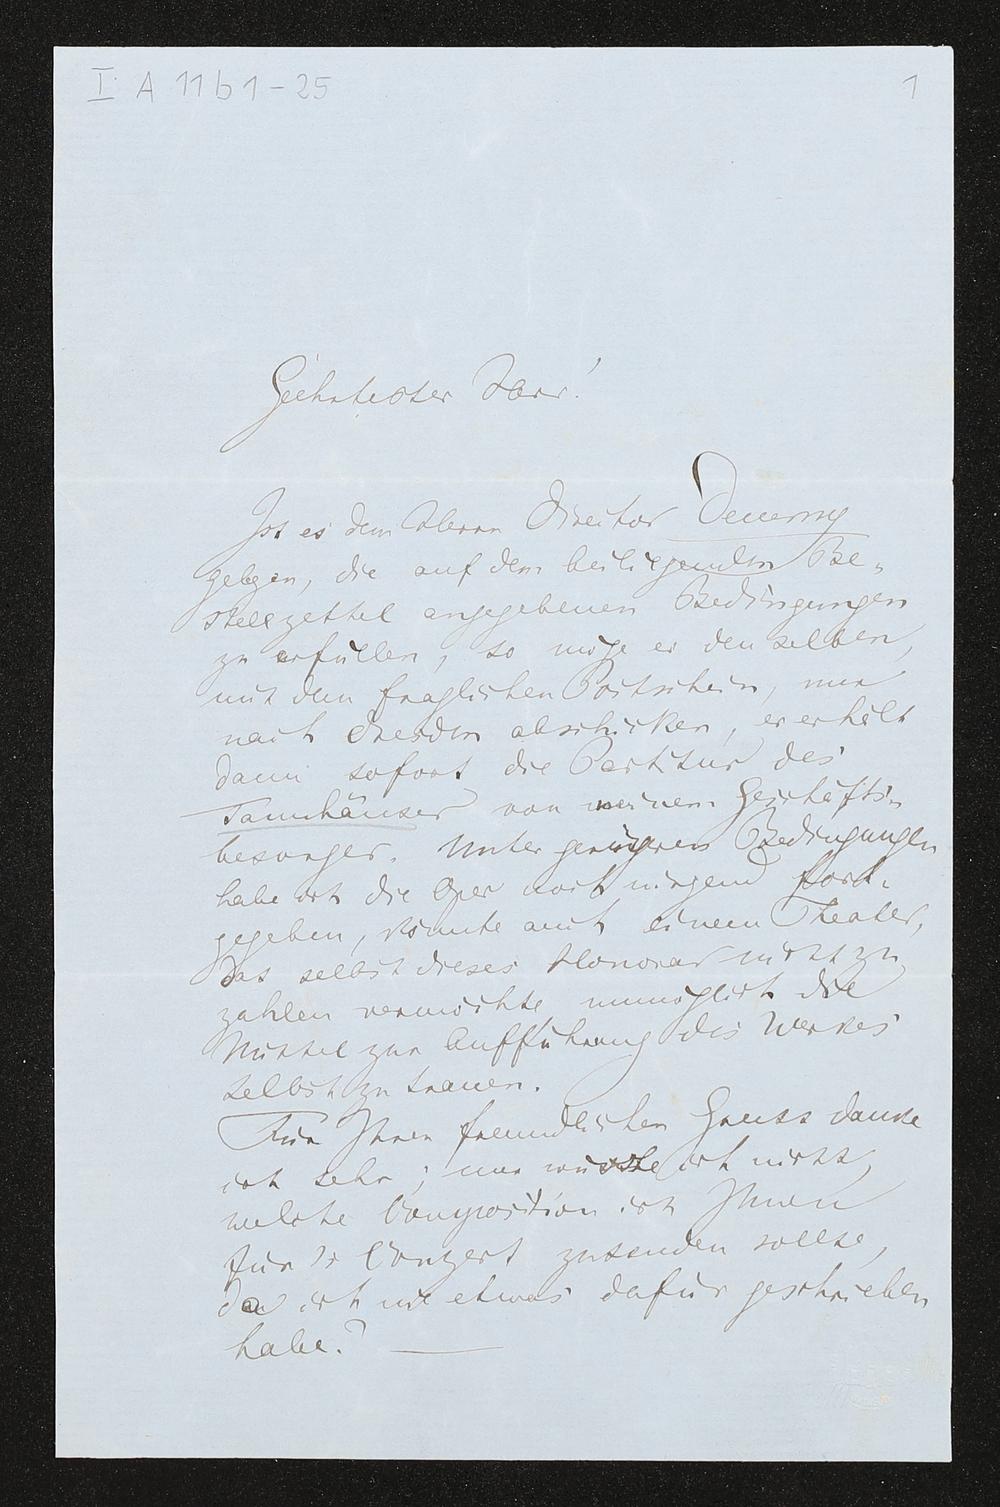 I A 11 b 1-25
1
Geehrtester Herr!
Ist es dem Herrn Director Denemy
gelegen, die auf dem beiliegenden Be-
stellzettel angegebenen Bedingungen
zu erfüllen, so möge er denselben,
mit dem fraglichen Postschein, nur
nach Dresden abschicken, er erhält
dann sofort die Partitur des
Tannhäuser von meinem Geschäfts-
besorger. Unter geringren Bedingungen
habe ich die Oper noch nirgend fort-
gegeben, könnte auch einem Theater,
das selbst dieses Honorar nicht zu
zahlen vermöchte, unmöglich die
Mittel zur Aufführung des Werkes
selbst zu trauen.
Für Ihren freundlichen Gruss danke
ich sehr; nur wüsste ich nicht,
welche Composition ich Ihnen
für's Conzert zusenden sollte,
da ich nie etwas dafür geschrieben
habe?